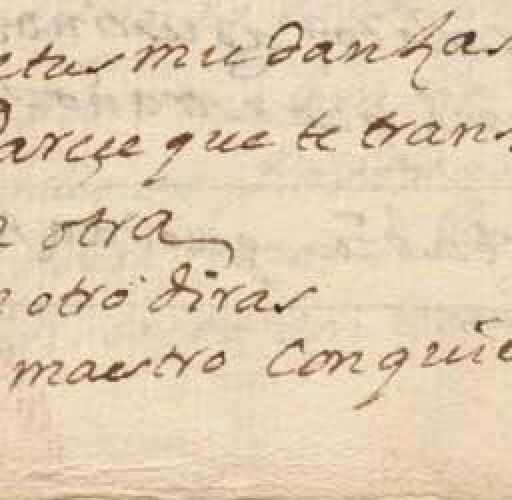 etus mudanças
Parçe que te trans
otra
otro diras
maestro Con quie